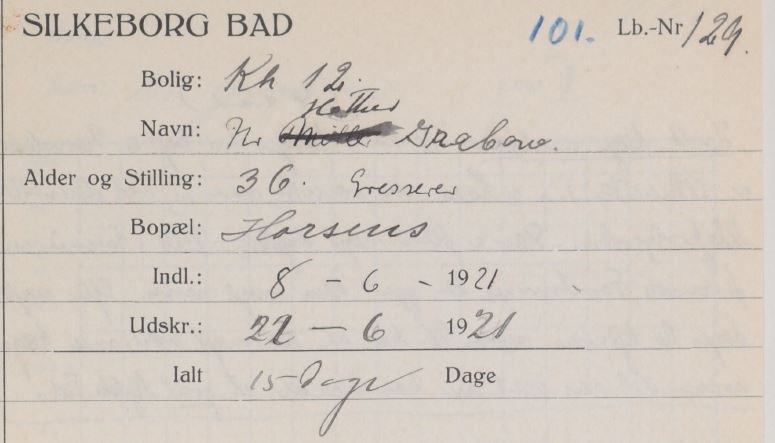 SILKEBORG BAD 101. Lb.-Nr 129.
Bolig: Kh 12.
Navn: Hr Grabow.
Alder og Stilling: 36. Grosserer
Bopæl: Horsens
Indl.: 8 - 6 - 1921
Udskr.: 22 - 6 1921
Ialt 15 Dage Dage